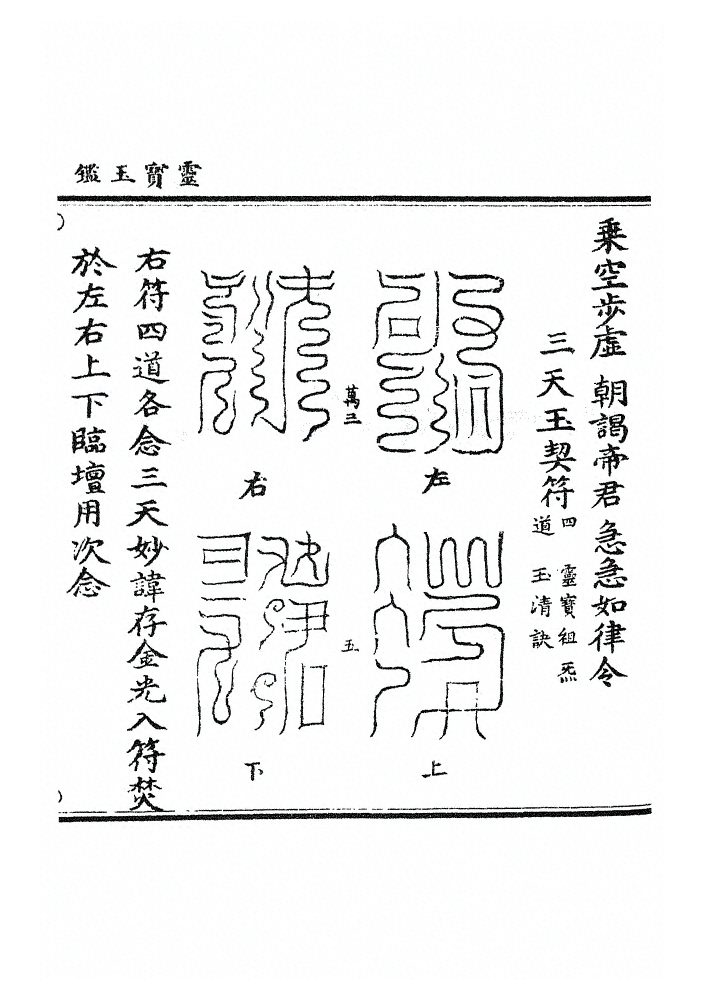 靈寶玉鑑
乗空步虛朝謁帝君急急如律令
三天玉契符四道 靈寶祖炁玉清訣
左
上
萬三
五
右
下
右符四道各念三天妙諱存金光入符焚
於左右上下臨壇用次念